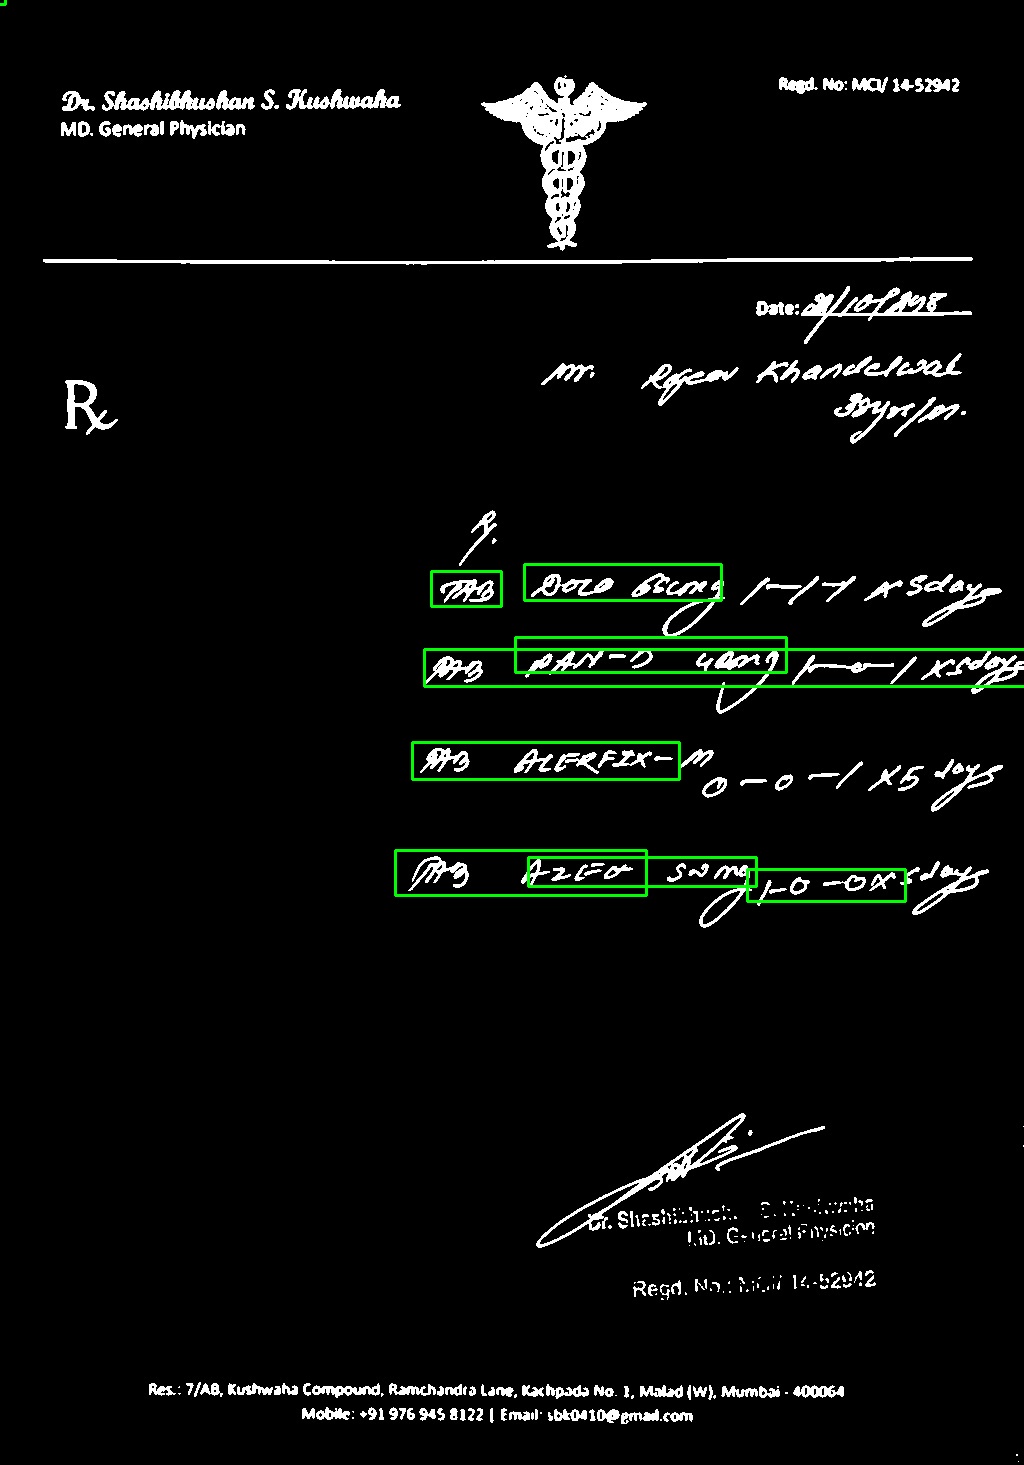 Dr. Shashibhushan S. Kushwaha
MD. General Physician
Regd. No: MCI/ 14-52942
Date:
Rx
Mr. Rajeev Khandelwal
Rx
TAB DOLO 650mg 1-1-1 x 5days
TAB PAN-D 40mg 1-0-1 x 5days
TAB ALERFIX-M 0-0-1 x 5 days
TAB 1-0-0 x 5 days
Dr. Shashibhush. S. Kushwaha
MD. General Physician
Regd. No.: MCI/ 14-52942
Res.: 7/AB, Kushwaha Compound, Ramchandra Lane, Kachpada No. 1, Malad (W), Mumbai - 400064
Mobile: +91 976 945 8122 | Email: sbk0410@gmail.com